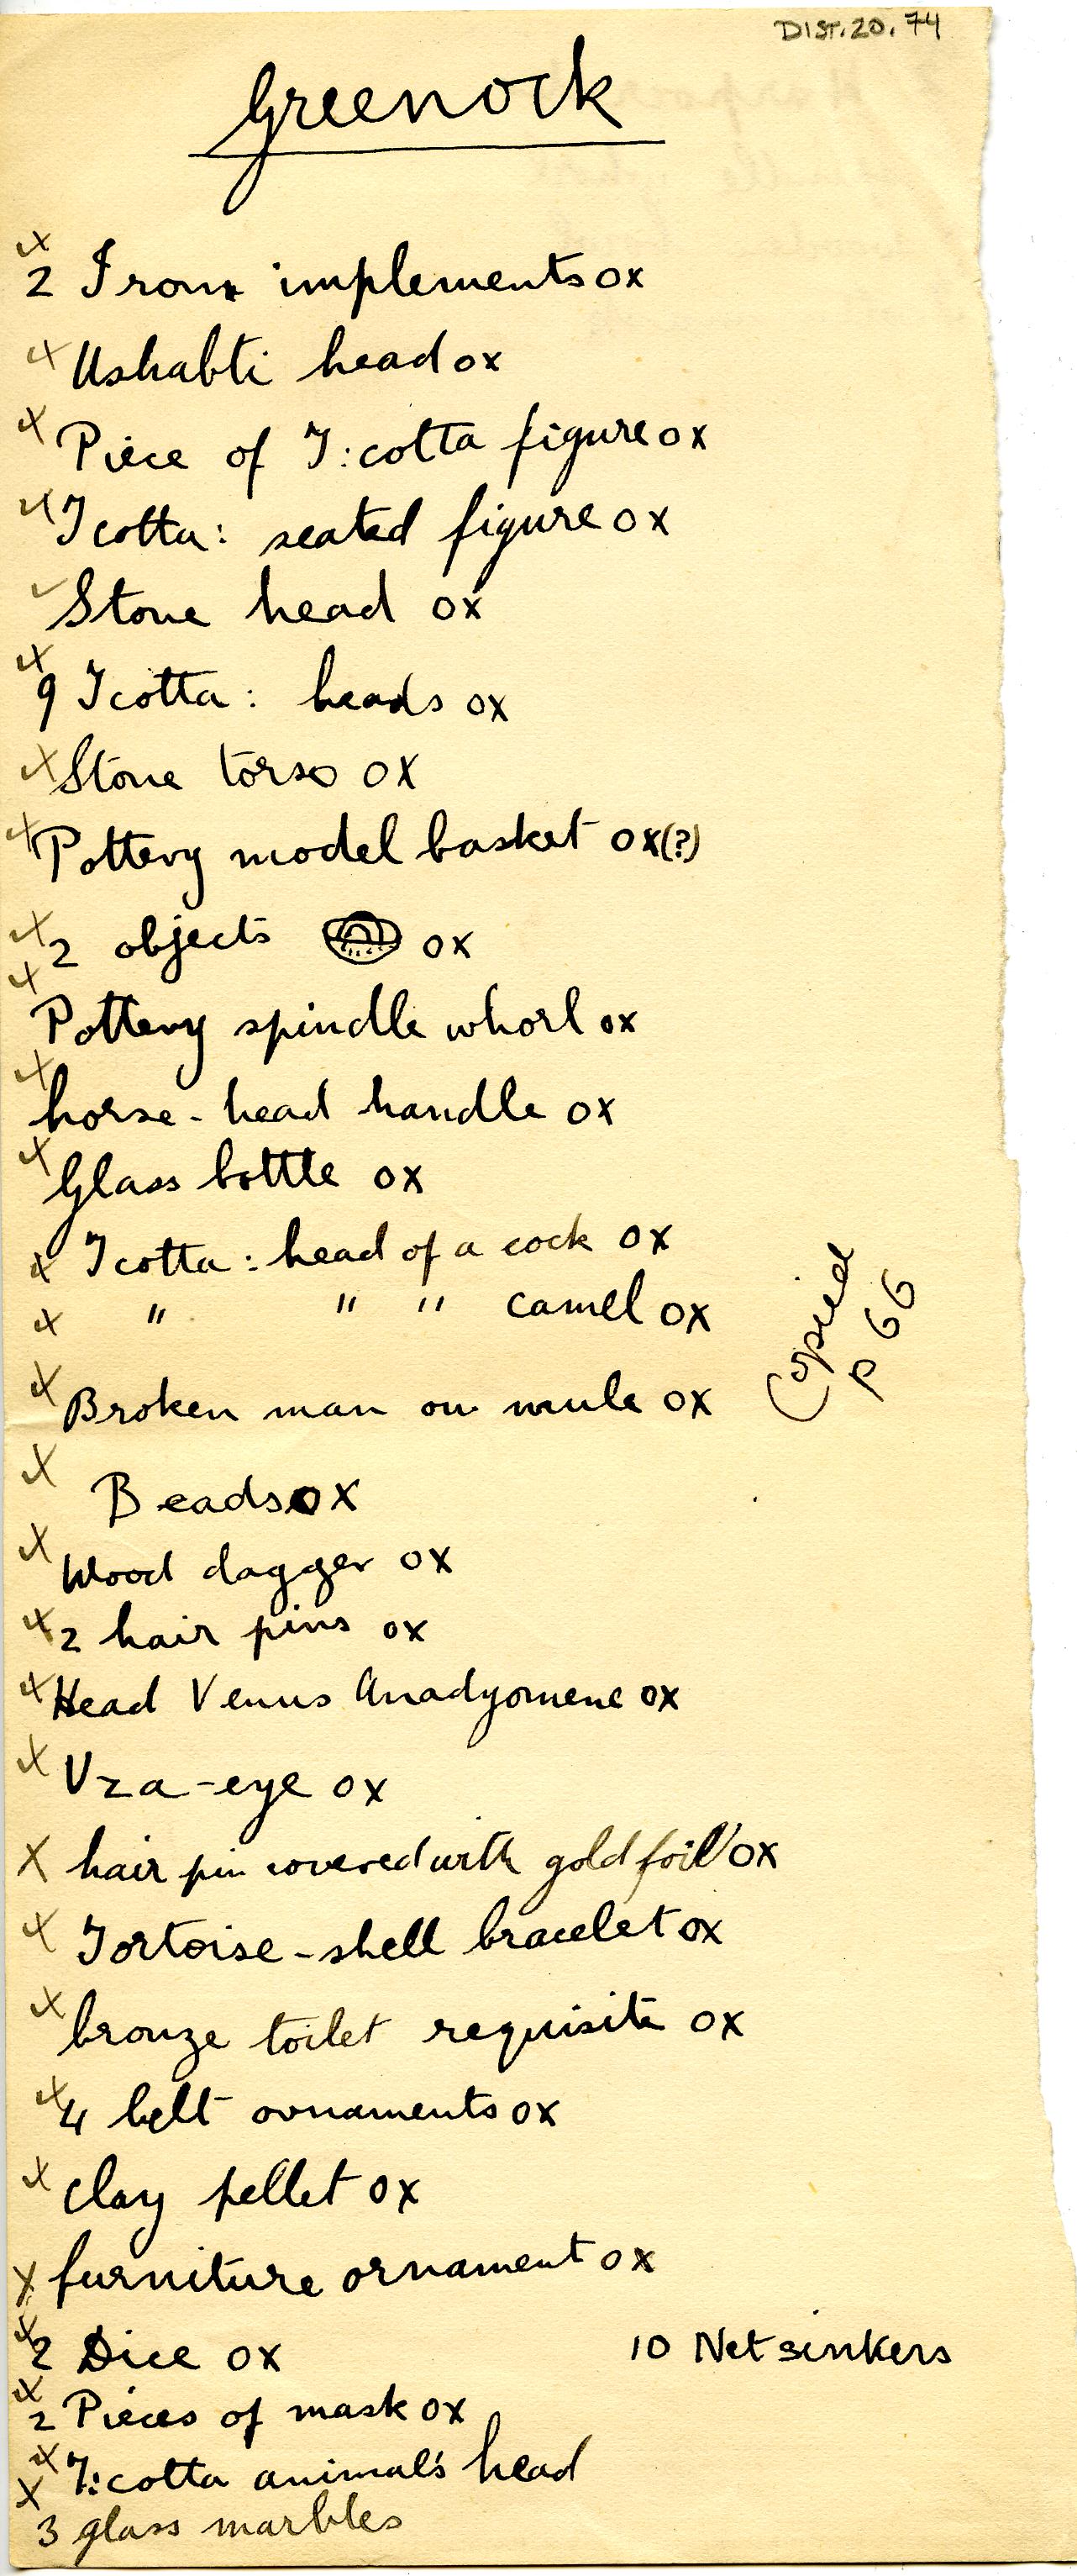 DIST. 20. 74
Greenock
2 Iron implements OX
Ushabti head OX
Piece of T:cotta figure OX
Tcotta: seated figure OX
Stone head OX
9 Tcotta: heads OX
Stone torso OX
Pottery model basket OX(?)
2 objects OX
Pottery spindle whorl OX
horse-head handle OX
Glass bottle OX
Tcotta: head of a cock OX
" " " camel OX
Broken man on mule OX
Beads OX
Wood dagger OX
2 hair pins OX
Head Venus Anadyomene OX
Uza-eye OX
hair pin covered with gold foil OX
Tortoise-shell bracelet OX
bronze toilet requisite OX
4 belt ornaments OX
Clay pellet OX
furniture ornament OX
2 Dice OX
2 Pieces of mask OX
T:cotta animal's head
3 glass marbles
Copied
p 66
10 Net sinkers